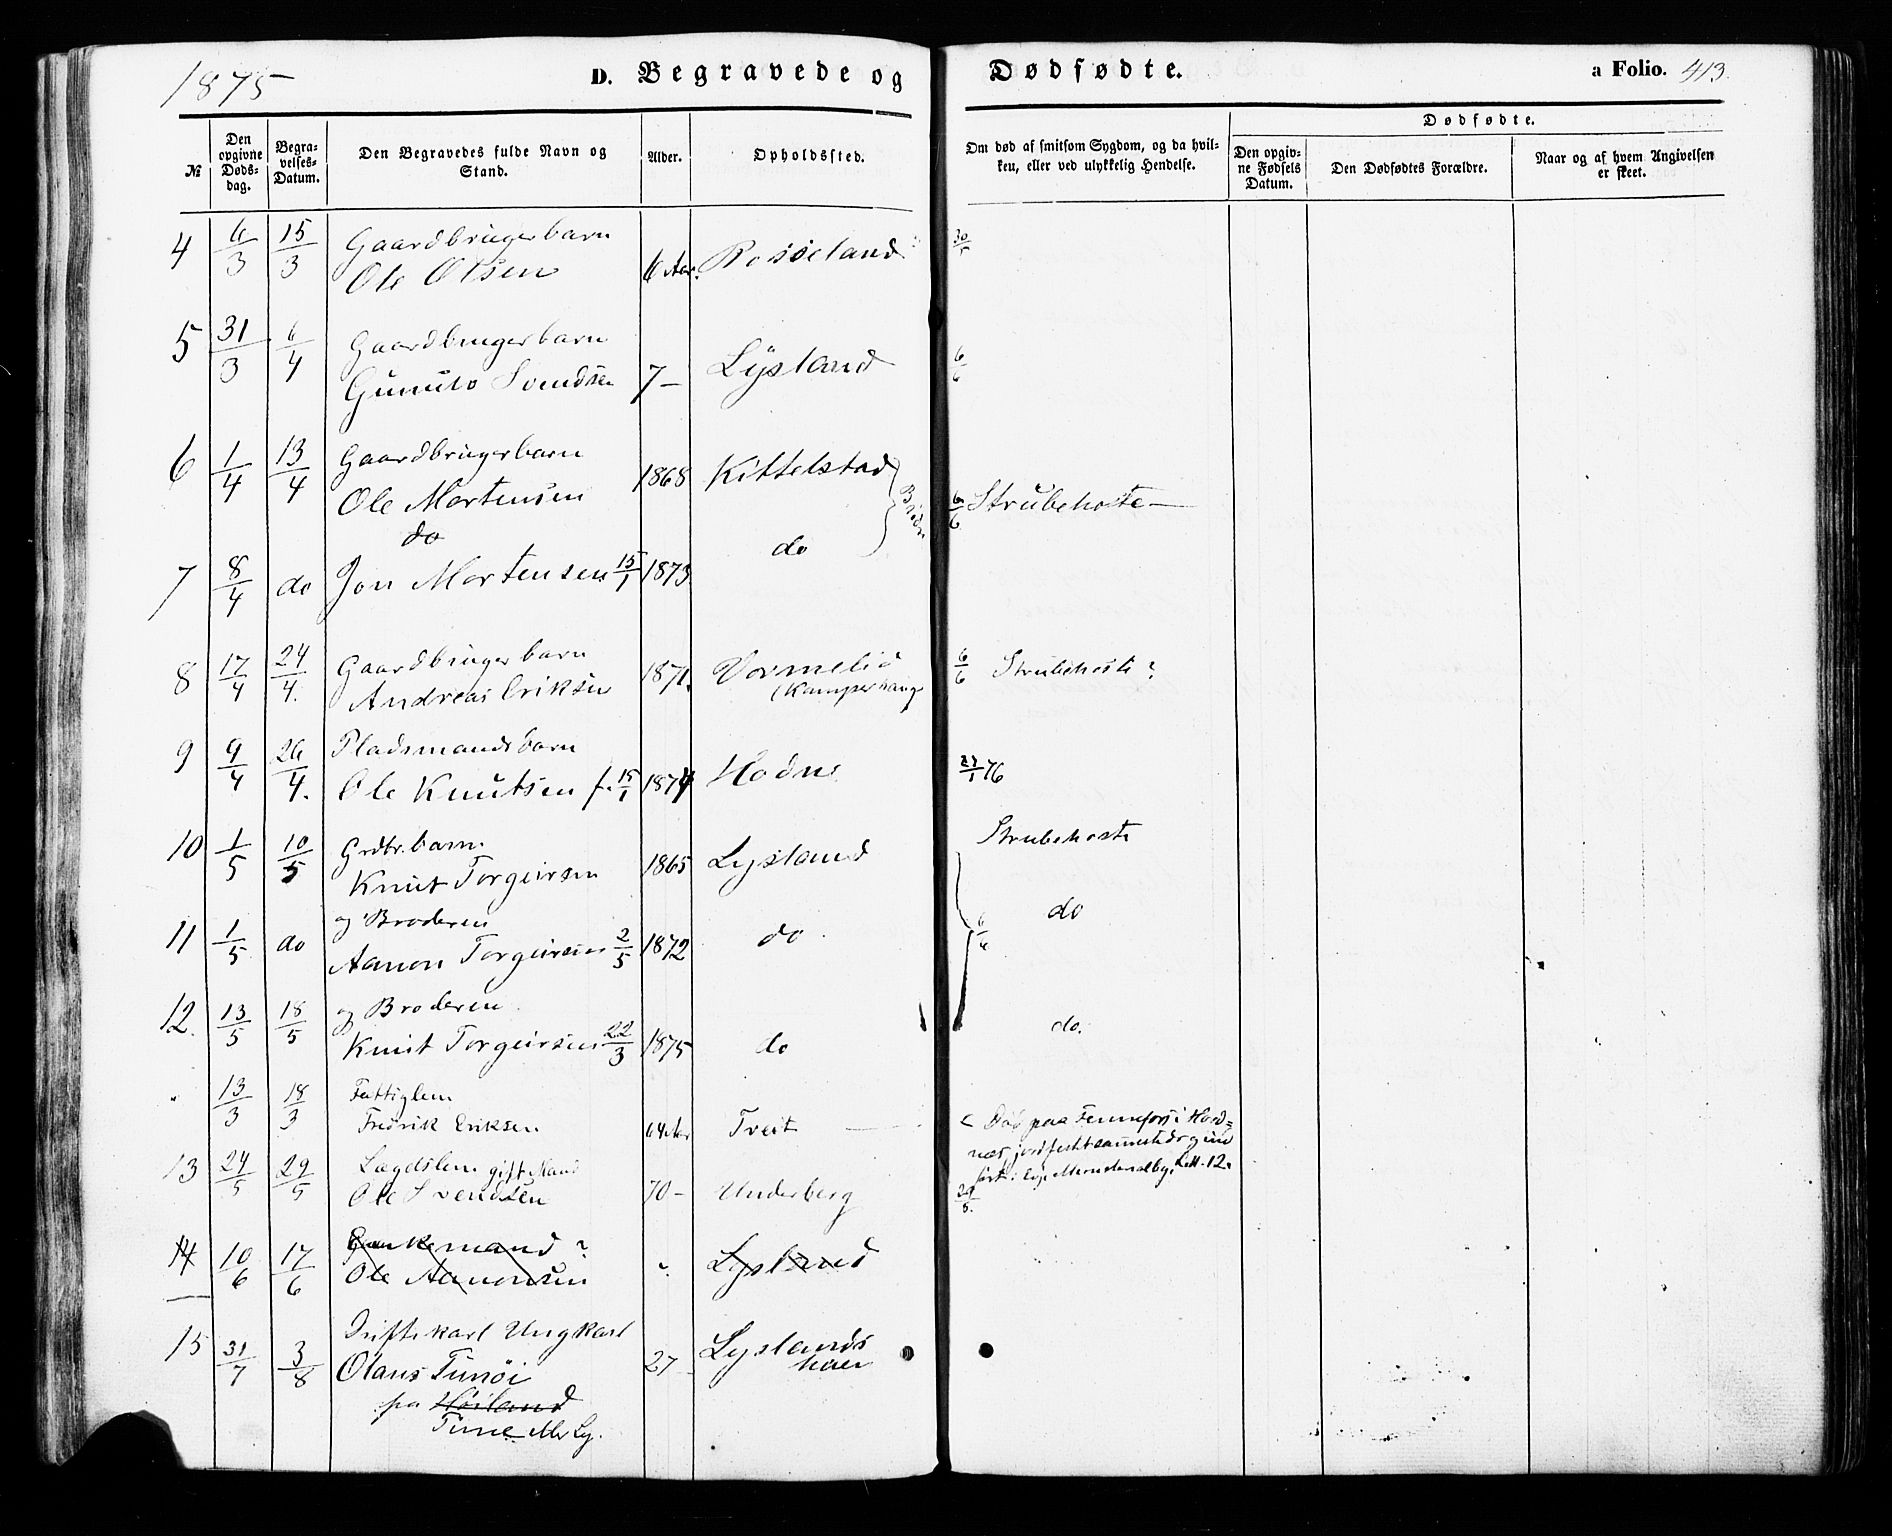 1875 D. Begravede og Dødfødte. a Folio. 413.
№
Den opgivne Døds-dag.
Begra-velses-Datum.
Den Begravedes fulde Navn og Stand.
Alder.
Opholdssted.
Om død af smitsom Sygdom, og da hvil-ken, eller ved ulykkelig Hendelse.
Dødfødte.
Den opgiv-ne Fødsels Datum.
Den Dødfødtes Forældre.
Naar og af hvem Angivelsen er skeet.
4 6/3 15/3 Gaardbrugerbarn
Ole Olsen 6 Aar. Rosseland 30/5
5 31/3 6/4 Gaardbrugerbarn
Gunulv Svendsen 7 – Lysland 6/6
6 1/4 13/4 Gaardbrugerbarn
Ole Mortensen 1868 Kittelstad Brødre 6/6 Strubehoste –
do
7 8/4 do Jon Mortensen 15/1 1873 do
8 17/4 24/4. Gaardbruger barn
Andreas Eriksen 1871. Vormelid
(Kamperhaug 6/6 Strubehoste ?
9 9/4 26/4. Pladsmandsbarn
Ole Knutsen f. 15/1 1874 Hodne 23/1 76
10 1/5 10/5 Grdbr. barn.
Knut Torgeirsen 1865 Lysland Strubehoste
11 1/5 do og Broderen
Aanon Torgeirsen 2/5 1872 do do
12. 13/5 18/5 og Broderen
Knut Torgeirsen 22/3 1875 do do.
" 13/3 18/3 Fattiglem
Fredrik Eriksen 64 Aar Tveit
Død paa Fennefoss i Hord=
næs, jordfestet sammesteds og ind
ført i Evje Ministerialbog. Litt. 12.
13 24/5 29/5 Lægdslem gift Mand
Ole Svendsen 70 – Underberg 29/5.
14 10/6 17/6 Enkemand ?
Ole Aanonsen Lysland
15 31/7 3/8 Driftekarl Ungkarl
Olaus Timøi 27 – Lyslands
heien
pa Høiland
Time